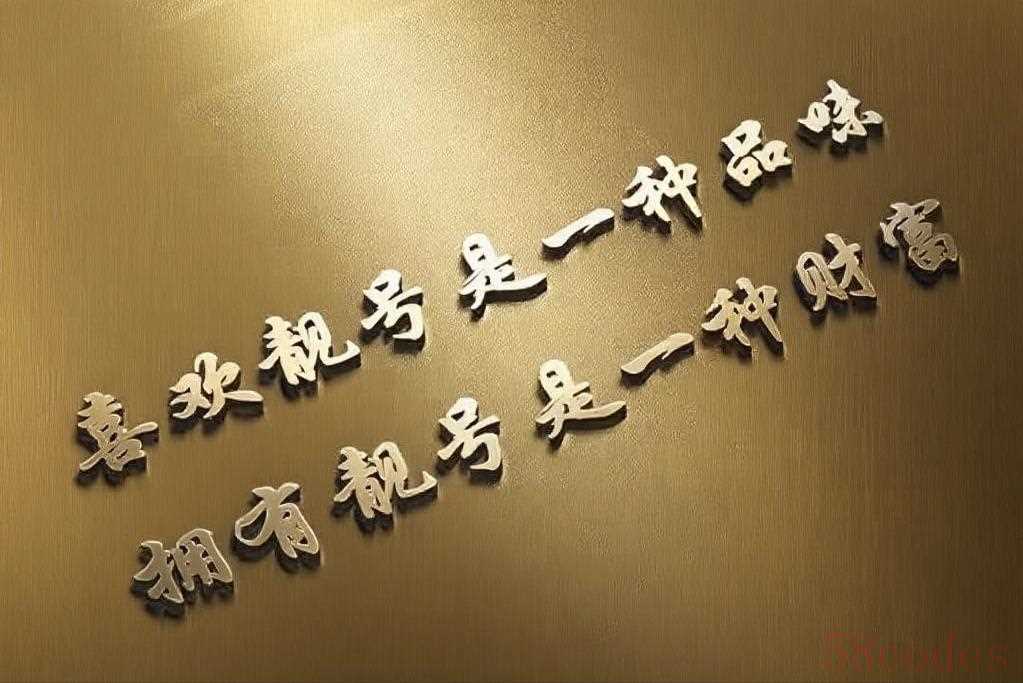 喜欢靓号是一种品味
拥有靓号是一种财富
58codes